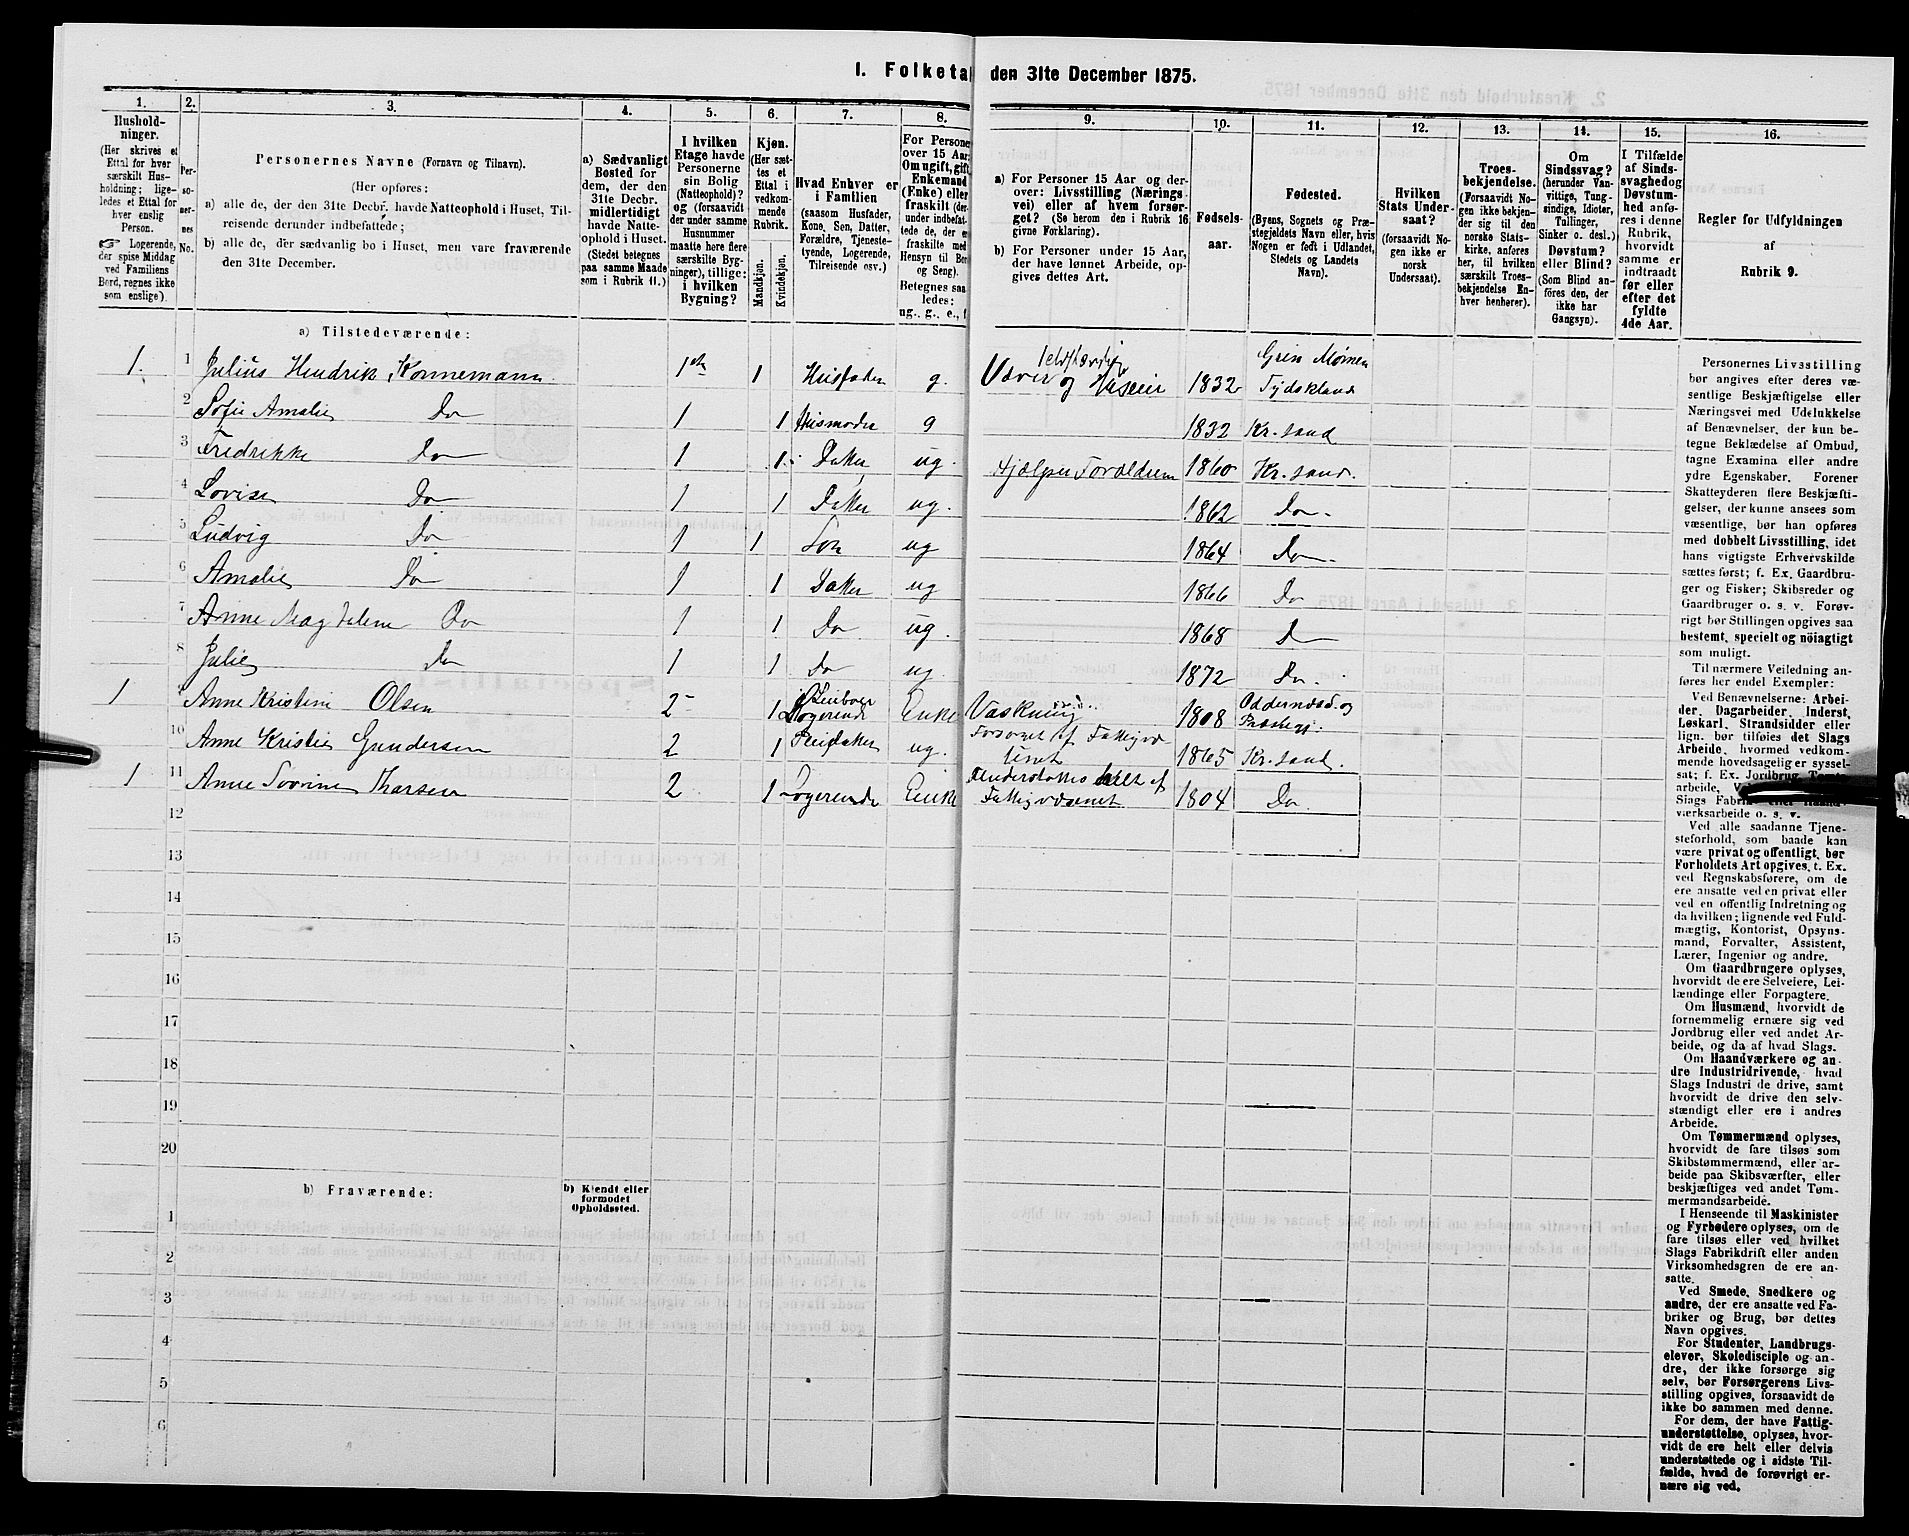 I. Folketal den 31te December 1875.
1. 2. 3. 4. 5. 6. 7. 8. 9. 10. 11. 12. 13. 14. 15. 16.
Hushold-
ninger.
(Her skrives et
Ettal for hver
særskilt Hus-
holdning; lige-
ledes et Ettal for
hver enslig
Person.
☞ Logerende,
der spise Middag
ved Familiens
Bord, regnes ikke
som enslige).
Per-
so-
ner-
nes
No.
Personernes Navne (Fornavn og Tilnavn).
(Her opføres:
a) alle de, der den 31te Decbr. havde Natteophold i Huset, Til-
reisende derunder indbefattede;
b) alle de, der sædvanlig bo i Huset, men vare fraværende
den 31te December.
a) Sædvanligt
Bosted for
dem, der den
31te Decbr.
midlertidigt
havde Natte-
ophold i Huset.
(Stedet betegnes
paa samme Maade
som i Rubrik 11.)
I hvilken
Etage havde
Personerne
sin Bolig
(Natteophold)?
og (forsaavidt
der under samme
Husnummer
maatte være flere
særskilte Byg-
ninger), tillige:
i hvilken
Bygning?
Kjøn.
(Her sæt-
tes et
Ettal i
vedkom-
mende
Rubrik.
Mandkjøn.
Kvindekjøn.
Hvad Enhver er
i Familien
(saasom Husfader,
Kone, Søn, Datter,
Forældre, Tjeneste-
tyende, Logerende,
Tilreisende osv.)
For Personer
over 15 Aar:
Om ugift, gift,
Enkemand
(Enke) eller
fraskilt (der-
under indbefat-
tede de, der ere
fraskilte med
Hensyn til Bord
og Seng).
Betegnes saa
ledes:
ug., g., e., f.
a) For Personer 15 Aar og der-
over: Livsstilling (Nærings-
vei) eller af hvem forsør-
get? (Se herom den i Rubrik 16
givne Forklaring).
b) For Personer under 15 Aar,
der have lønnet Arbeide, op-
gives dettes Art.
Fødsels-
aar.
Fødested.
(Byens, Sognets og Præ-
stegjeldets Navn eller, hvis
Nogen er født i Udlandet,
Stedets og Landets
Navn).
Hvilken
Stats Under-
saat?
(forsaavidt No-
gen ikke er
norsk
Undersaat).
Troes-
bekjendelse.
(Forsaavidt No-
gen ikke bekjen-
der sig til den
norske Stats-
kirke, anføres
her, til hvilken
særskilt Troes-
bekjendelse En-
hver henhører).
Om
Sindssvag?
(herunder Van-
vittige, Tung-
sindige, Idioter,
Tullinger,
Sinker o. desl.)
Døvstum?
eller Blind?
(Som Blind an-
føres den, der
ikke har
Gangsyn).
I Tilfælde
af Sinds-
svaghed og
Døvstum-
hed anfø-
res i denne
Rubrik,
hvorvidt
samme er
indtraadt
før eller
efter det
fyldte
4de Aar.
Regler for Udfyldningen
af
Rubrik 9.
a) Tilstedeværende:
1. 1 Julius Hendrik Konnemann 1 1 Husfader g. Væver og Huseier 1832 Tydskland
2 Sofie Amalie Do 1 1 Husmoder g 1832 Kr.sand
3 Fredrikke Do 1 1 Datter ug. Hjælper Forældrene 1860 Kr.sand.
4 Lovise Do 1 1 Datter ug. 1862 Do
5 Ludvig Do 1 1 Søn ug 1864 Do
6 Amalie Do 1 1 Datter ug 1866 Do
7 Anne Magdalene Do 1 1 Do ug. 1868 Do
8 Julie Do 1 1 Do ug 1872 Do
1 9 Anne Kristine Olsen 2 1 Logerende Enke Vaskning 1808
10 Anne Kristie Gundersen 2 1 Pleidatter ug. Forsørget af Fattigvæ-
senet 1865 Kr.sand.
1 11 Anne Sovrine Tharsen 2 1 Logerende Enke Understøttes helt af
Fattigvæsenet 1804 Do
12
13
14
15
16
17
18
19
20
b) Fraværende:
b) Kjendt eller
formodet
Opholdssted.
1
2
3
4
5
6
Personernes Livsstilling
bør angives efter deres væ-
sentlige Beskjæftigelse eller
Næringsvei med Udelukkelse
af Benævnelser, der kun be-
tegne Beklædelse af Ombud,
tagne Examina eller andre
ydre Egenskaber. Forener
Skatteyderen flere Beskjæfti-
gelser, der kunne ansees som
væsentlige, bør han opføres
med dobbelt Livsstilling, idet
hans vigtigste Erhvervskilde
sættes først; f. Ex. Gaardbru-
ger og Fisker; Skibsreder og
Gaardbruger o. s. v. Forøv-
rigt bør Stillingen opgives saa
bestemt, specielt og nöiagtigt
som muligt.
Til nærmere Veiledning an-
føres her endel Exempler:
Ved Benævnelserne: Arbei-
der, Dagarbeider, Inderst,
Løskarl, Strandsidder eller
lign. bør tilføies det Slags
Arbeide, hvormed vedkom-
mende hovedsagelig er syssel-
sat; f. Ex. Jordbrug, Tømte-
arbeide,
Slags Fabrik-
værksarbeide o. s. v.
Ved alle saadanne Tjene-
steforhold, som baade kan
være privat og offentligt, bør
Forholdets Art opgives, t. Ex.
ved Regnskabsførere, om de
ere ansatte ved en privat eller
ved en offentlig Indretning og
da hvilken; lignende ved Fuld-
mægtig, Kontorist, Opsyns-
mand, Forvalter, Assistent,
Lærer, Ingeniør og andre.
Om Gaardbrugere oplyses,
hvorvidt de ere Selveiere, Lei-
lændinge eller Forpagtere.
Om Husmænd, hvorvidt de
fornemmelig ernære sig ved
Jordbrug eller ved andet Ar-
beide, og da af hvad Slags.
Om Haandværkere og an-
dre Industridrivende, hvad
Slags Industri de drive, samt
hvorvidt de drive den selv-
stændigt eller ere i andres
Arbeide.
Om Tømmermænd oplyses,
hvorvidt de fare tilsøs som
Skibstømmermænd, eller ar-
beide paa Skibsværfter, eller
beskjæftiges ved andet Tøm-
mermandsarbeide.
I Henseende til Maskinister
og Fyrbødere oplyses, om de
fare tilsøs eller ved hvilket
Slags Fabrikdrift eller anden
Virksomhedsgren de ere an-
satte.
Ved Smede, Snedkere og
andre, der ere ansatte ved Fa-
briker og Brug, bør dettes
Navn opgives.
For Studenter, Landbrugs-
elever, Skoledisciple og an-
dre, der ikke forsørge sig
selv, bør Forsørgerens Livs-
stilling opgives, forsaavidt de
ikke bo sammen med denne.
For dem, der have Fattig-
understøttelse, oplyses, hvor-
vidt de ere helt eller delvis
understøttede og i sidste Til-
fælde, hvad de forøvrigt er-
nære sig ved.